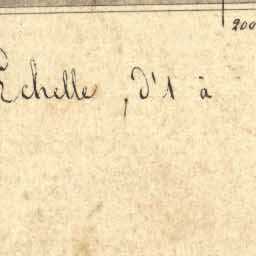 200
Echelle, d'1 à